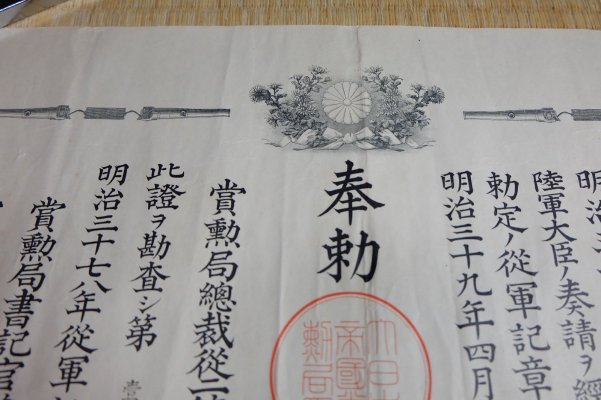 明治三
陸軍大臣ノ奏請ヲ經
勅定ノ從軍記章
明治三十九年四月
奉勅
賞勲局總裁從二位
此證ヲ勘査シ第
明治三十七八年從軍記
賞勲局書記官